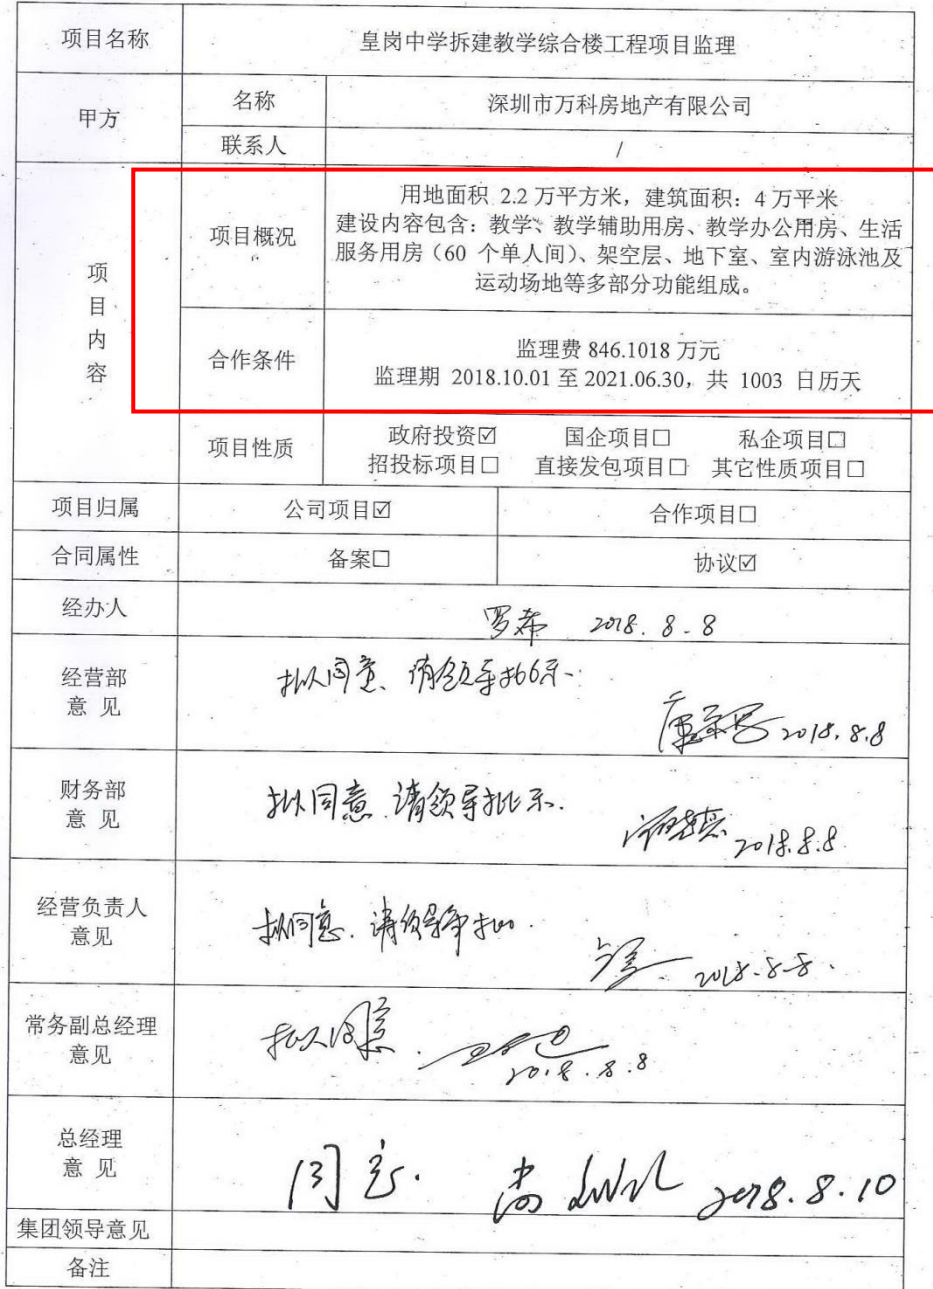 项目名称 皇岗中学拆建教学综合楼工程项目监理
甲方 名称 深圳市万科房地产有限公司
联系人 /
项目内容
项目概况
用地面积 2.2 万平方米，建筑面积：4 万平米
建设内容包含：教学、教学辅助用房、教学办公用房、生活
服务用房（60 个单人间）、架空层、地下室、室内游泳池及
运动场地等多部分功能组成。
合作条件
监理费 846.1018 万元
监理期 2018.10.01 至 2021.06.30，共 1003 日历天
项目性质
政府投资☑ 国企项目□ 私企项目□
招投标项目□ 直接发包项目□ 其它性质项目□
项目归属 公司项目☑ 合作项目□
合同属性 备案□ 协议☑
经办人 2018.8.8
经营部
意 见
拟同意、请领导批示.
2018.8.8
财务部
意 见
拟同意.请领导批示.
2018.8.8
经营负责人
意见
拟同意.请领导审批.
2018.8.8.
常务副总经理
意见
拟同意.
2018.8.8
总经理
意 见
同意. 2018.8.10
集团领导意见
备注